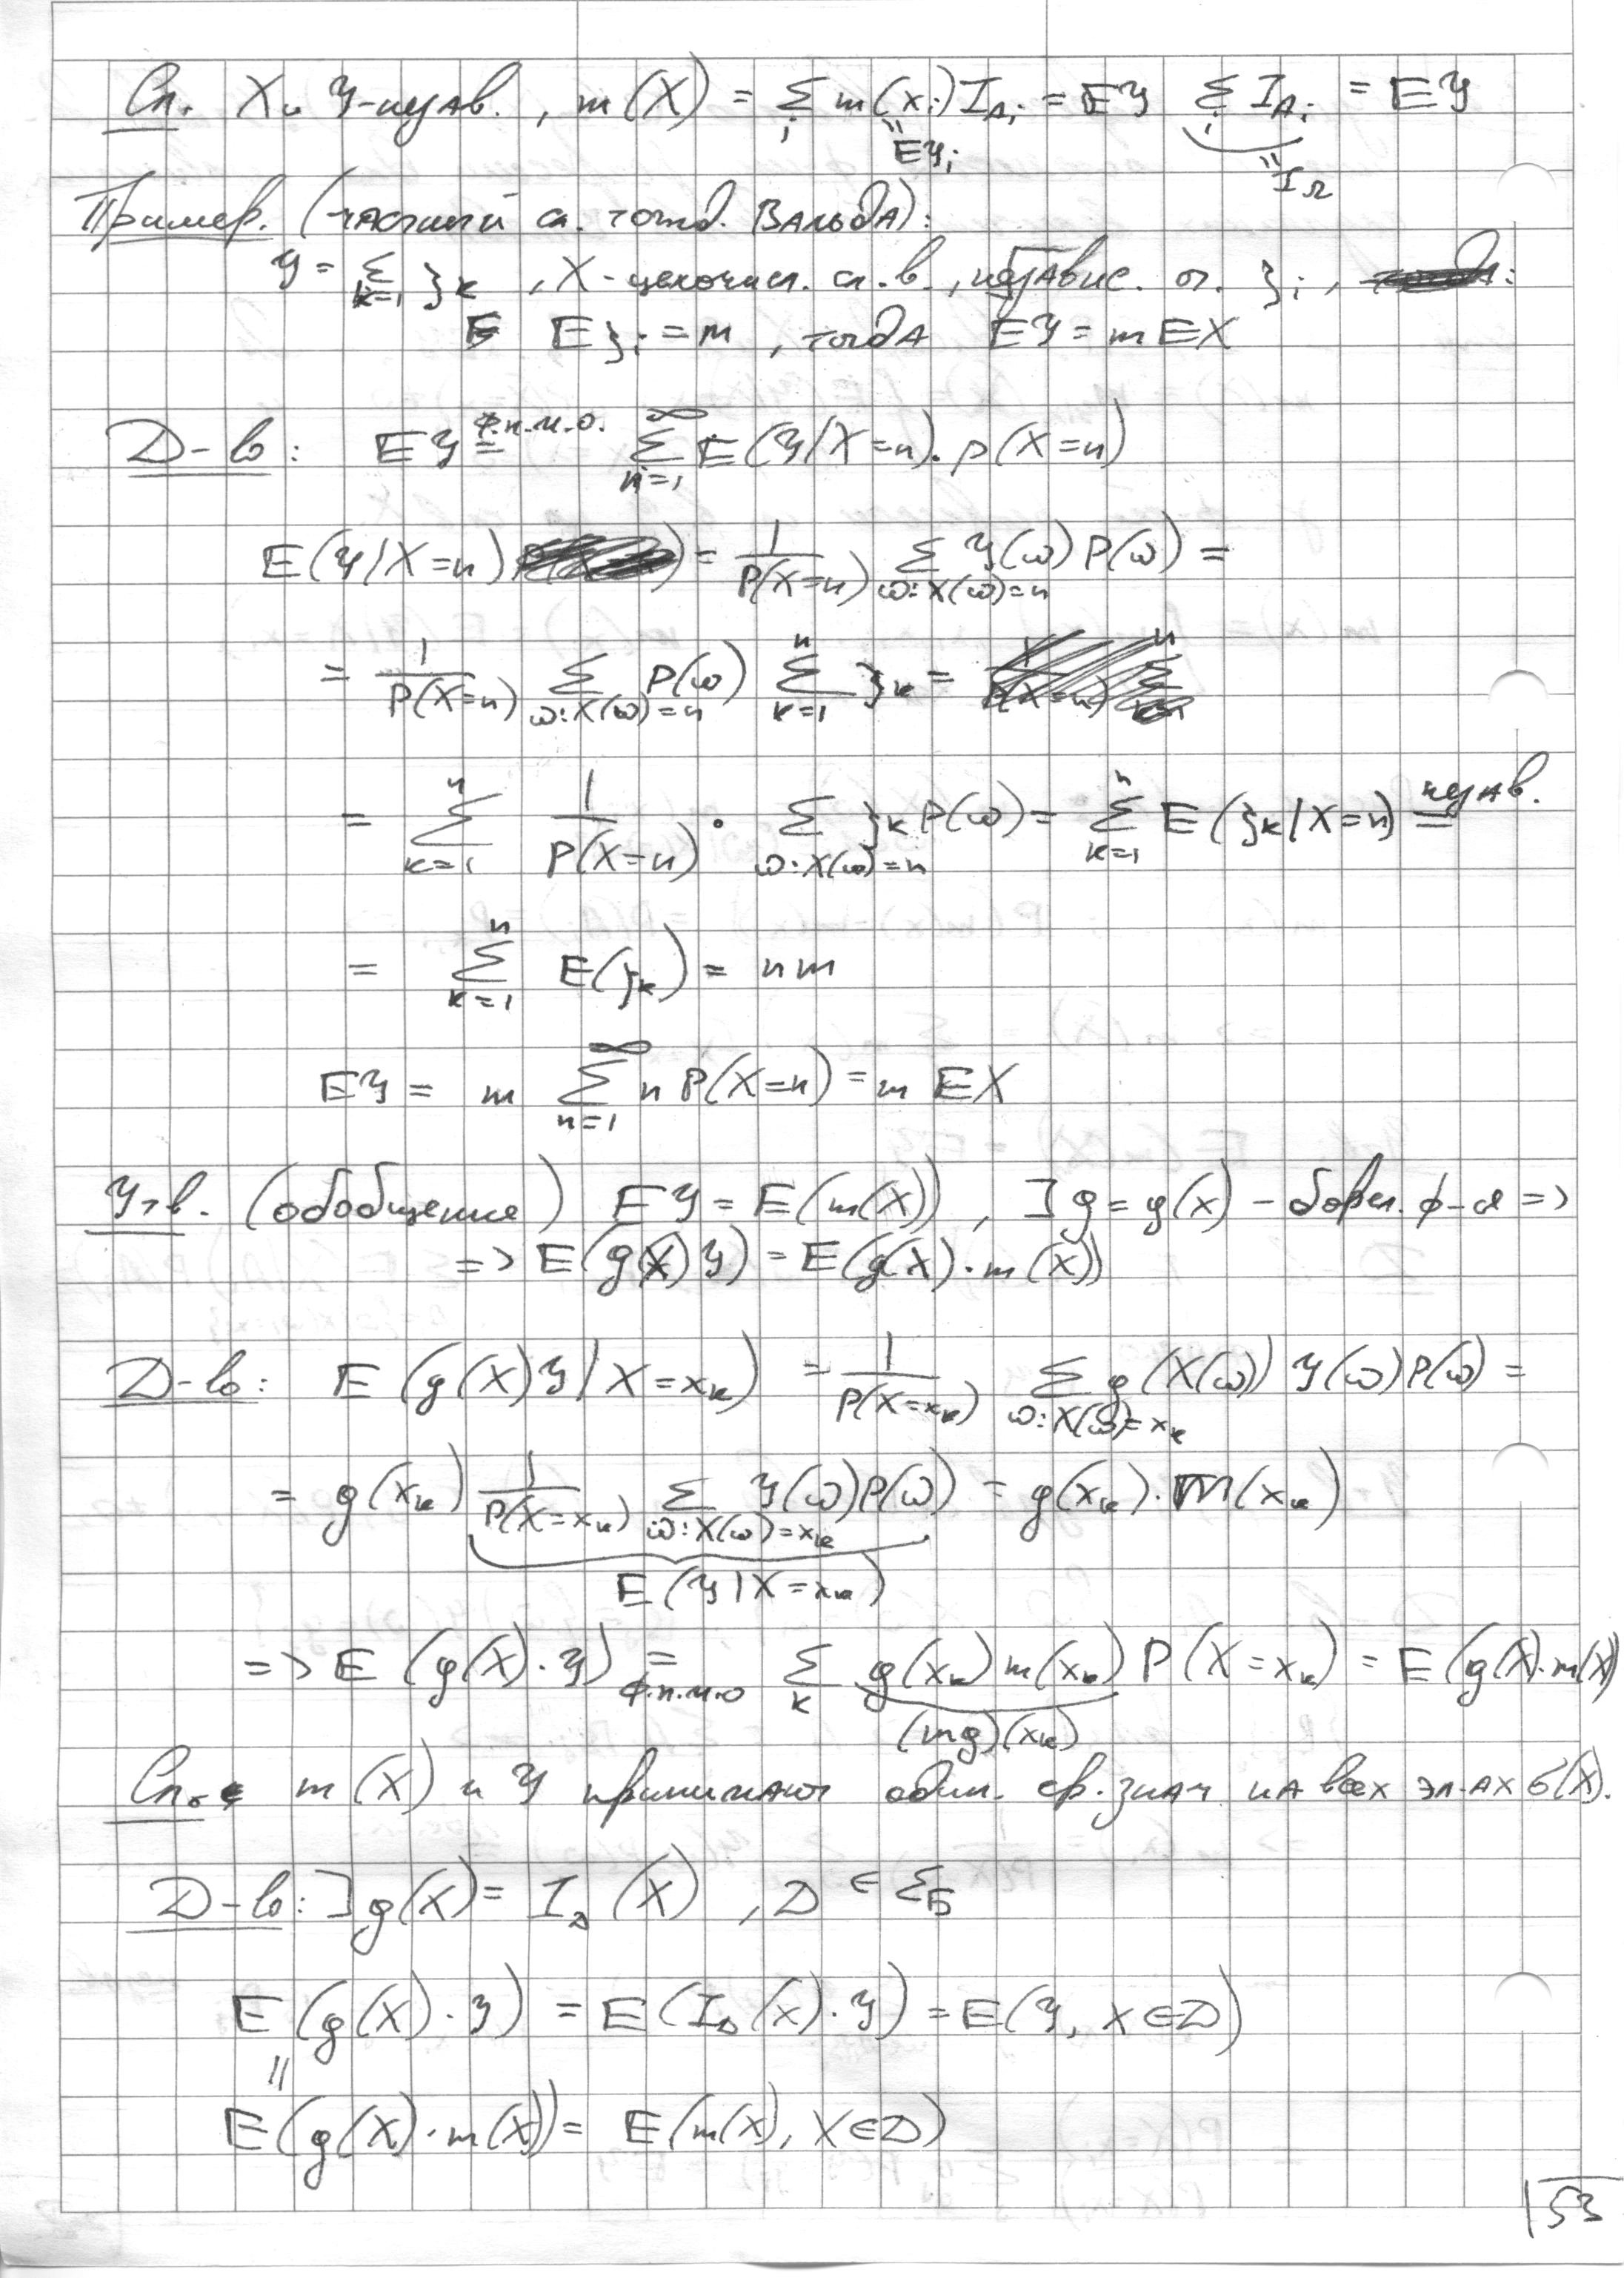 Сл. X и Y-незав., m(X) = Σ_i m(x_i) I_{A_i} = EY Σ_i I_{A_i} = EY
" EY_i " I_Ω
Пример. (частный сл. тожд. Вальда):
Y = Σ_{k=1} ξ_k , X-целочисл. сл. в., независ. от ξ_i ,
E ξ_i = m , тогда EY = m EX
Д-во: EY =^{ф.п.м.о.} Σ_{n=1}^∞ E(Y/X=n) · p(X=n)
E(Y/X=n) = 1/P(X=n) Σ_{ω:X(ω)=n} Y(ω) P(ω) =
= 1/P(X=n) Σ_{ω:X(ω)=n} P(ω) Σ_{k=1}^n ξ_k =
= Σ_{k=1}^n 1/P(X=n) · Σ_{ω:X(ω)=n} ξ_k P(ω) = Σ_{k=1}^n E(ξ_k/X=n) =^{незав.}
= Σ_{k=1}^n E(ξ_k) = nm
EY = m Σ_{n=1}^∞ n P(X=n) = m EX
Утв. (обобщение) EY = E(m(X)) , ] g = g(x) - борел. ф-я =>
=> E(g(X) Y) = E(g(X) · m(X))
Д-во: E (g(X)Y / X=x_k) = 1/P(X=x_k) Σ_{ω:X(ω)=x_k} g(X(ω)) Y(ω) P(ω) =
= g(x_k) 1/P(X=x_k) Σ_{ω:X(ω)=x_k} Y(ω)P(ω) = g(x_k) · m(x_k)
E(Y | X=x_k)
=> E (g(X) · Y) =_{ф.п.м.о} Σ_k g(x_k) m(x_k) P(X=x_k) = E(g(X)·m(X))
(mg)(x_k)
Сл. m(X) и Y принимают один. ср. знач на всех эл-ах σ(X).
Д-во: ] g(X) = I_D (X) , D ∈ Σ_Б
E (g(X) · Y) = E(I_D(X) · Y) = E(Y, X∈D)
||
E(g(X) · m(X)) = E(m(X), X∈D)
53